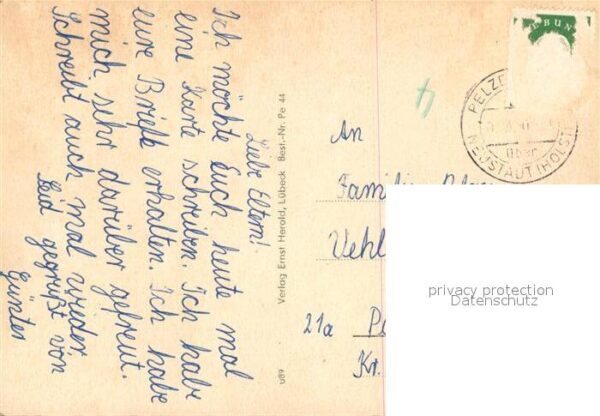 Liebe Eltern!
Ich möchte Euch heute mal
eine Karte schreiben. Ich habe
eure Briefe erhalten. Ich habe
mich sehr darüber gefreut.
Schreibt auch mal wieder
Seid gegrüßt von
Günter
Verlag Ernst Herold, Lübeck Best.-Nr. Pe 44
u89
BUN
PELZE
über
NEUSTADT (HOLST
4
An
Famili
Vehl
21a
Kr.
privacy protection
Datenschutz